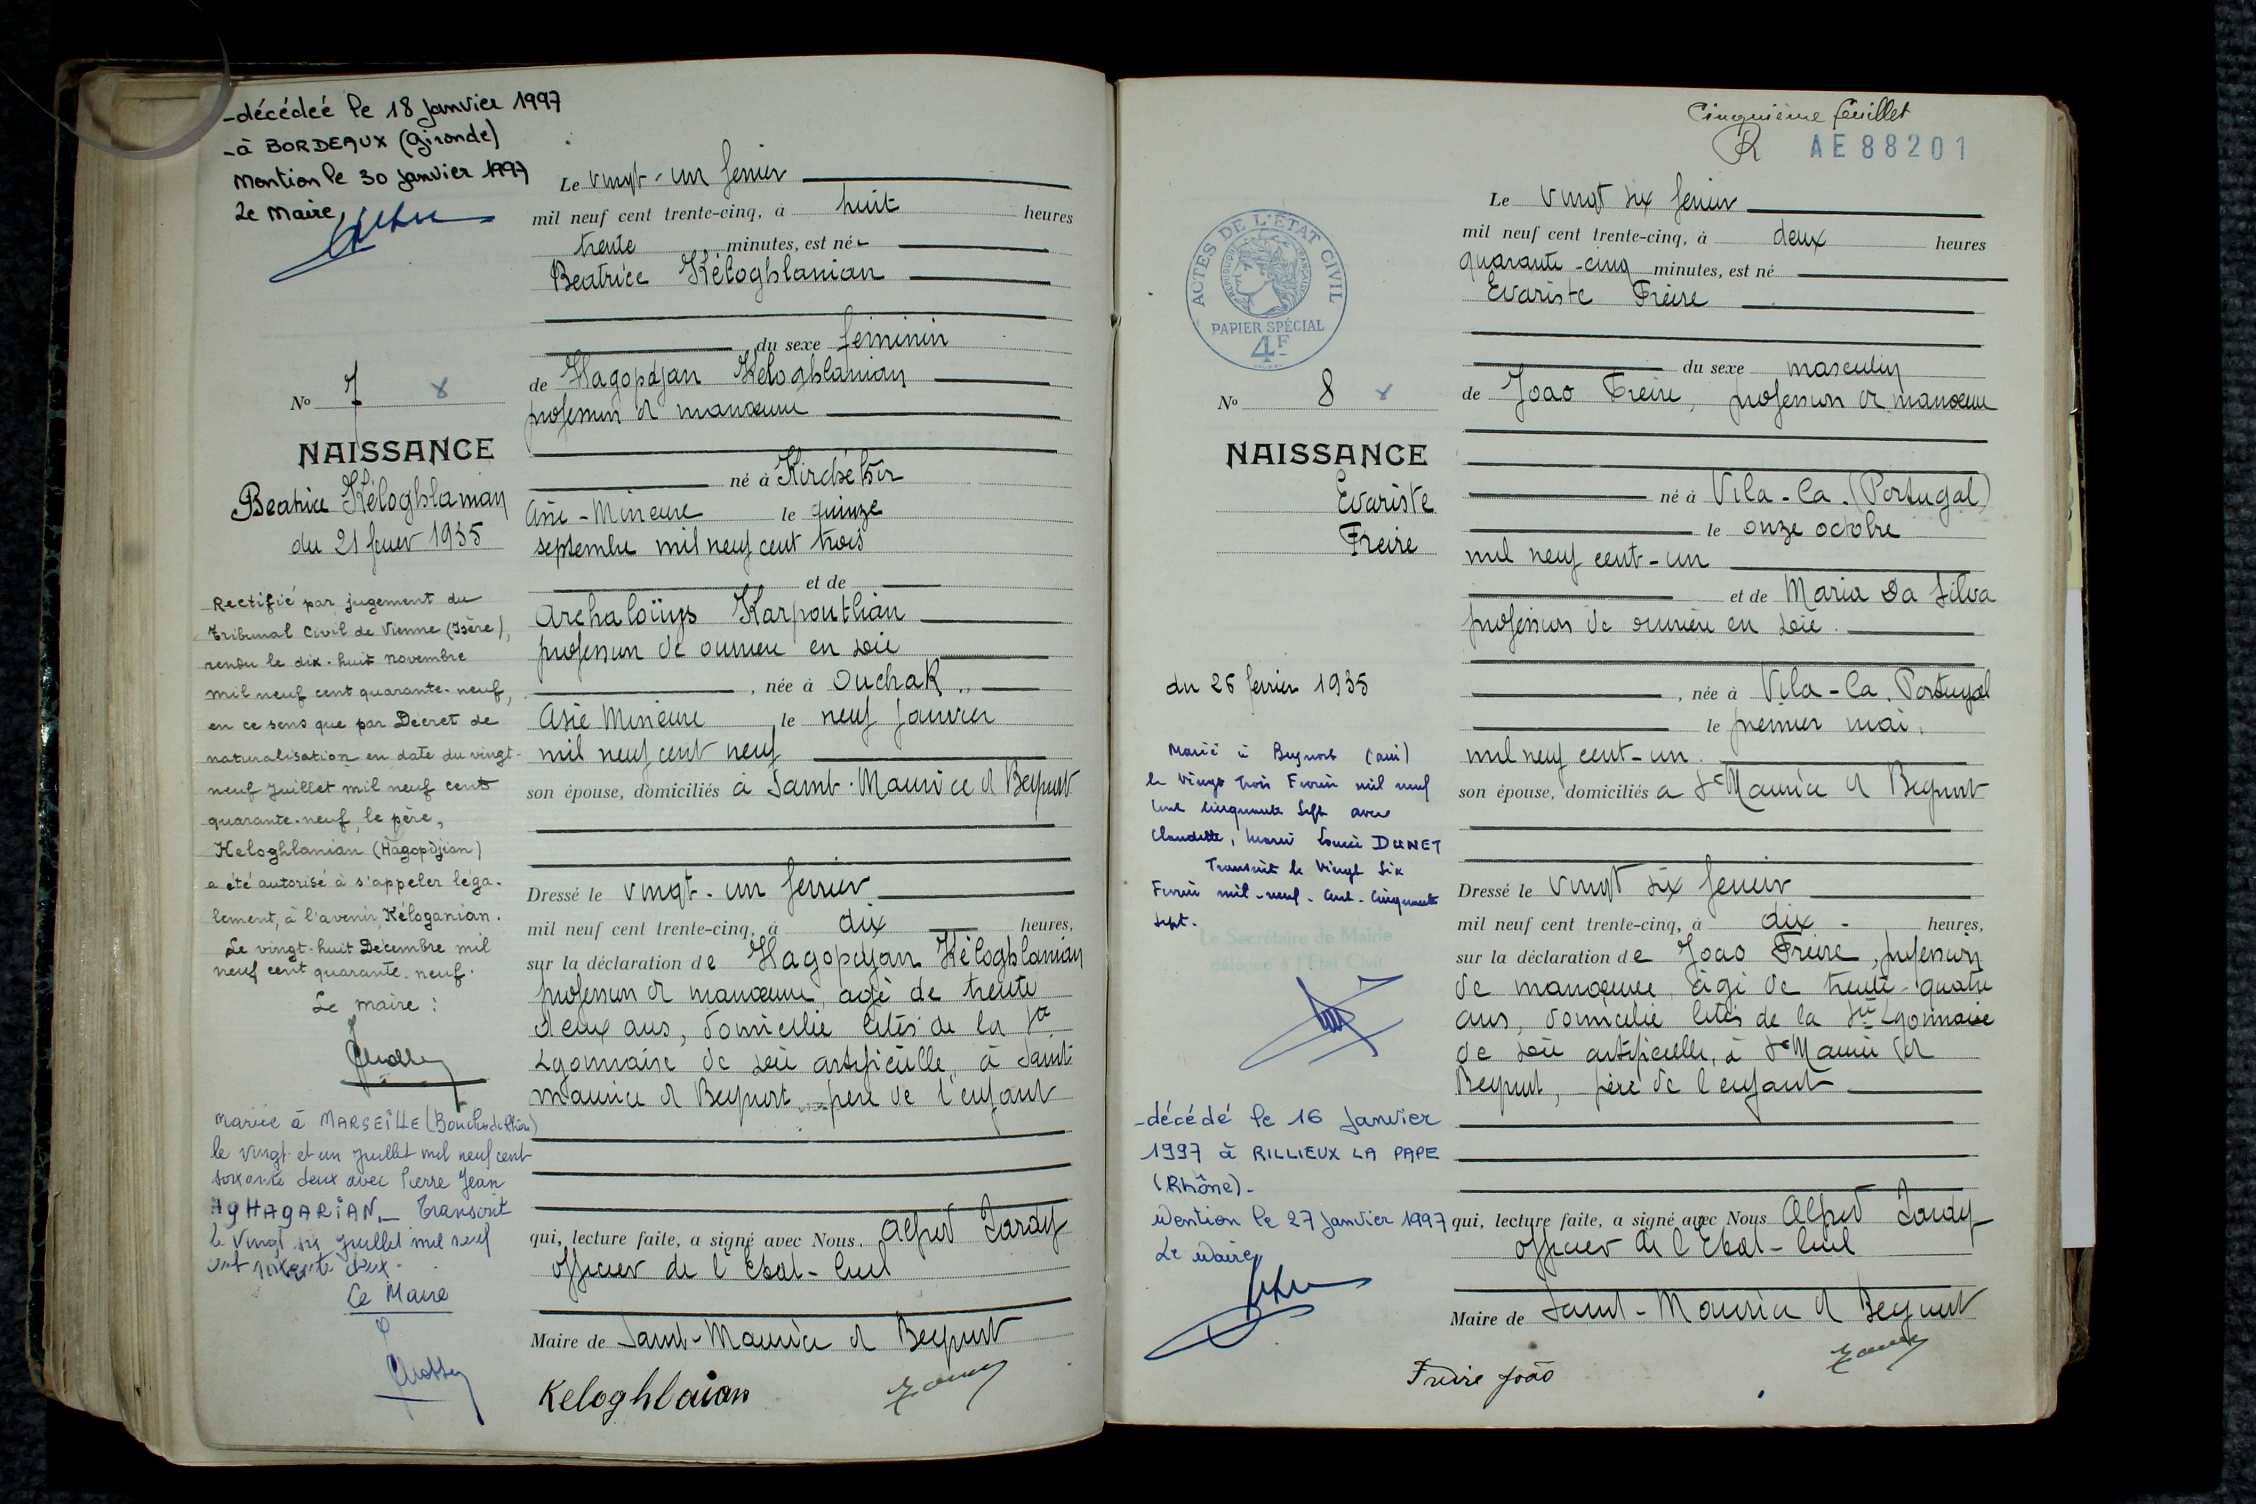 -décédée le 18 janvier 1997
-à BORDEAUX (Gironde)
Mention le 30 janvier 1997
Le Maire,
Le vingt-un fevrier
mil neuf cent trente-cinq, à huit heures
trente minutes, est née
Beatrice Kéloghlanian
du sexe feminin
de Hagopdjan Keloghlanian
profession de manœuvre
né à
Asie-Mineure le quinze
septembre mil neuf cent trois
et de
Archaloüys Karpouthian
profession de ouvriere en soie
, née à Ouchak
Asie Mineure le neuf janvier
mil neuf cent neuf
son épouse, domiciliés à Saint-Maurice de Beynost
Dressé le vingt-un fevrier
mil neuf cent trente-cinq, à dix heures,
sur la déclaration de Hagopdjan Kéloghlanian
profession de manœuvre, agé de trente
deux ans, domicilié cités de la Sté
Lyonnaise de soie artificielle, à Saint
Maurice de Beynost, père de l'enfant
qui, lecture faite, a signé avec Nous, Alfred Tardy
officier de l'Etat-Civil
Maire de Saint-Maurice de Beynost
Keloghlaian
No 7 8
NAISSANCE
Beatrice Kéloghlanian
du 21 fevrier 1935
Rectifié par jugement du
Tribunal Civil de Vienne (Isère),
rendu le dix-huit novembre
mil neuf cent quarante-neuf,
en ce sens que par Décret de
naturalisation en date du vingt-
neuf juillet mil neuf cent
quarante-neuf, le père,
Keloghlanian (Hagopdjian)
a été autorisé à s'appeler léga-
lement, à l'avenir, Kéloganian.
Le vingt-huit Décembre mil
neuf cent quarante-neuf.
Le maire :
Mariée à MARSEILLE (Bouches du Rhône)
le vingt et un juillet mil neuf cent
soixante deux avec Pierre Jean
AGHAGARIAN._ Transcrit
le vingt six juillet mil neuf
cent soixante deux.
Le Maire
Cinquième feuillet
R AE88201
ACTES DE L'ÉTAT CIVIL
RÉPUBLIQUE FRANÇAISE
PAPIER SPÉCIAL
4F
Le vingt six fevrier
mil neuf cent trente-cinq, à deux heures
quarante-cinq minutes, est né
Evariste Freire
du sexe masculin
de Joao Freire, profession de manœuvre
né à Vila-Ca. (Portugal)
le onze octobre
mil neuf cent-un
et de Maria Da Silva
profession de ouvrière en soie.
, née à Vila-Ca. Portugal
le premier mai,
mil neuf cent-un.
son épouse, domiciliés à St Maurice de Beynost
Dressé le vingt six fevrier
mil neuf cent trente-cinq, à dix heures,
sur la déclaration de Joao Freire, profession
de manœuvre, âgé de trente-quatre
ans, domicilié cités de la Sté Lyonnaise
de soie artificielle, à St Maurice de
Beynost, père de l'enfant
qui, lecture faite, a signé avec Nous Alfred Tardy
officier de l'Etat-Civil
Maire de Saint-Maurice de Beynost
Freire João
No 8 8
NAISSANCE
Evariste
Freire
du 26 fevrier 1935
Marié à Beynost (Ain)
le vingt trois Fevrier mil neuf
cent cinquante sept avec
Claudette, Marie Louise DUNET
Transcrit le vingt six
Fevrier mil-neuf-cent-cinquante
sept.
Le Secrétaire de Mairie
délégué à l'Etat Civil
-décédé le 16 janvier
1997 à RILLIEUX LA PAPE
(Rhône)-
Mention le 27 janvier 1997
Le Maire,